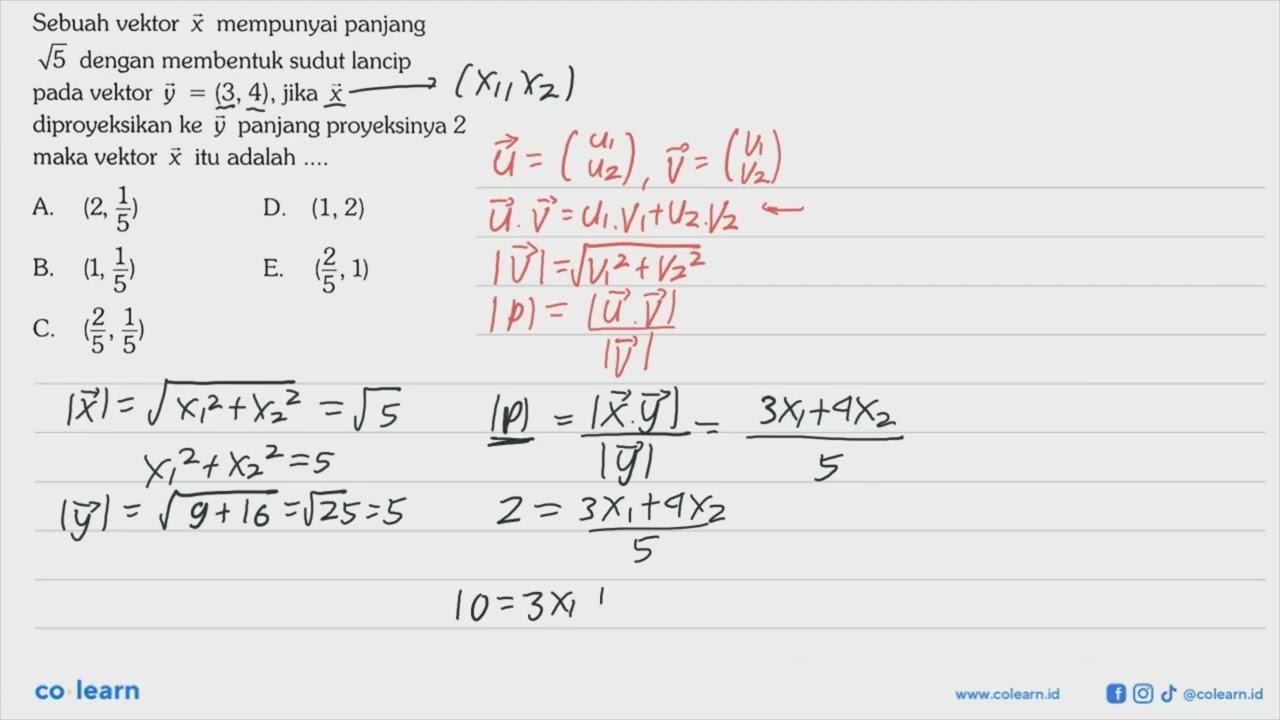 Sebuah vektor x⃗ mempunyai panjang
√5 dengan membentuk sudut lancip
pada vektor y⃗ = (3, 4), jika x⃗ → (x₁, x₂)
diproyeksikan ke y⃗ panjang proyeksinya 2
maka vektor x⃗ itu adalah ....
A. (2, 1/5) D. (1, 2)
B. (1, 1/5) E. (2/5, 1)
C. (2/5, 1/5)
u⃗ = (u₁ u₂), v⃗ = (v₁ v₂)
u⃗ . v⃗ = u₁.v₁ + u₂.v₂ ←
|v⃗| = √(v₁² + v₂²)
|p| = |u⃗ . v⃗| / |v⃗|
|x⃗| = √(x₁² + x₂²) = √5
x₁² + x₂² = 5
|y⃗| = √(9 + 16) = √25 = 5
|p| = |x⃗ . y⃗| / |y⃗| = (3x₁ + 4x₂) / 5
2 = (3x₁ + 4x₂) / 5
10 = 3x₁
co learn
www.colearn.id @colearn.id